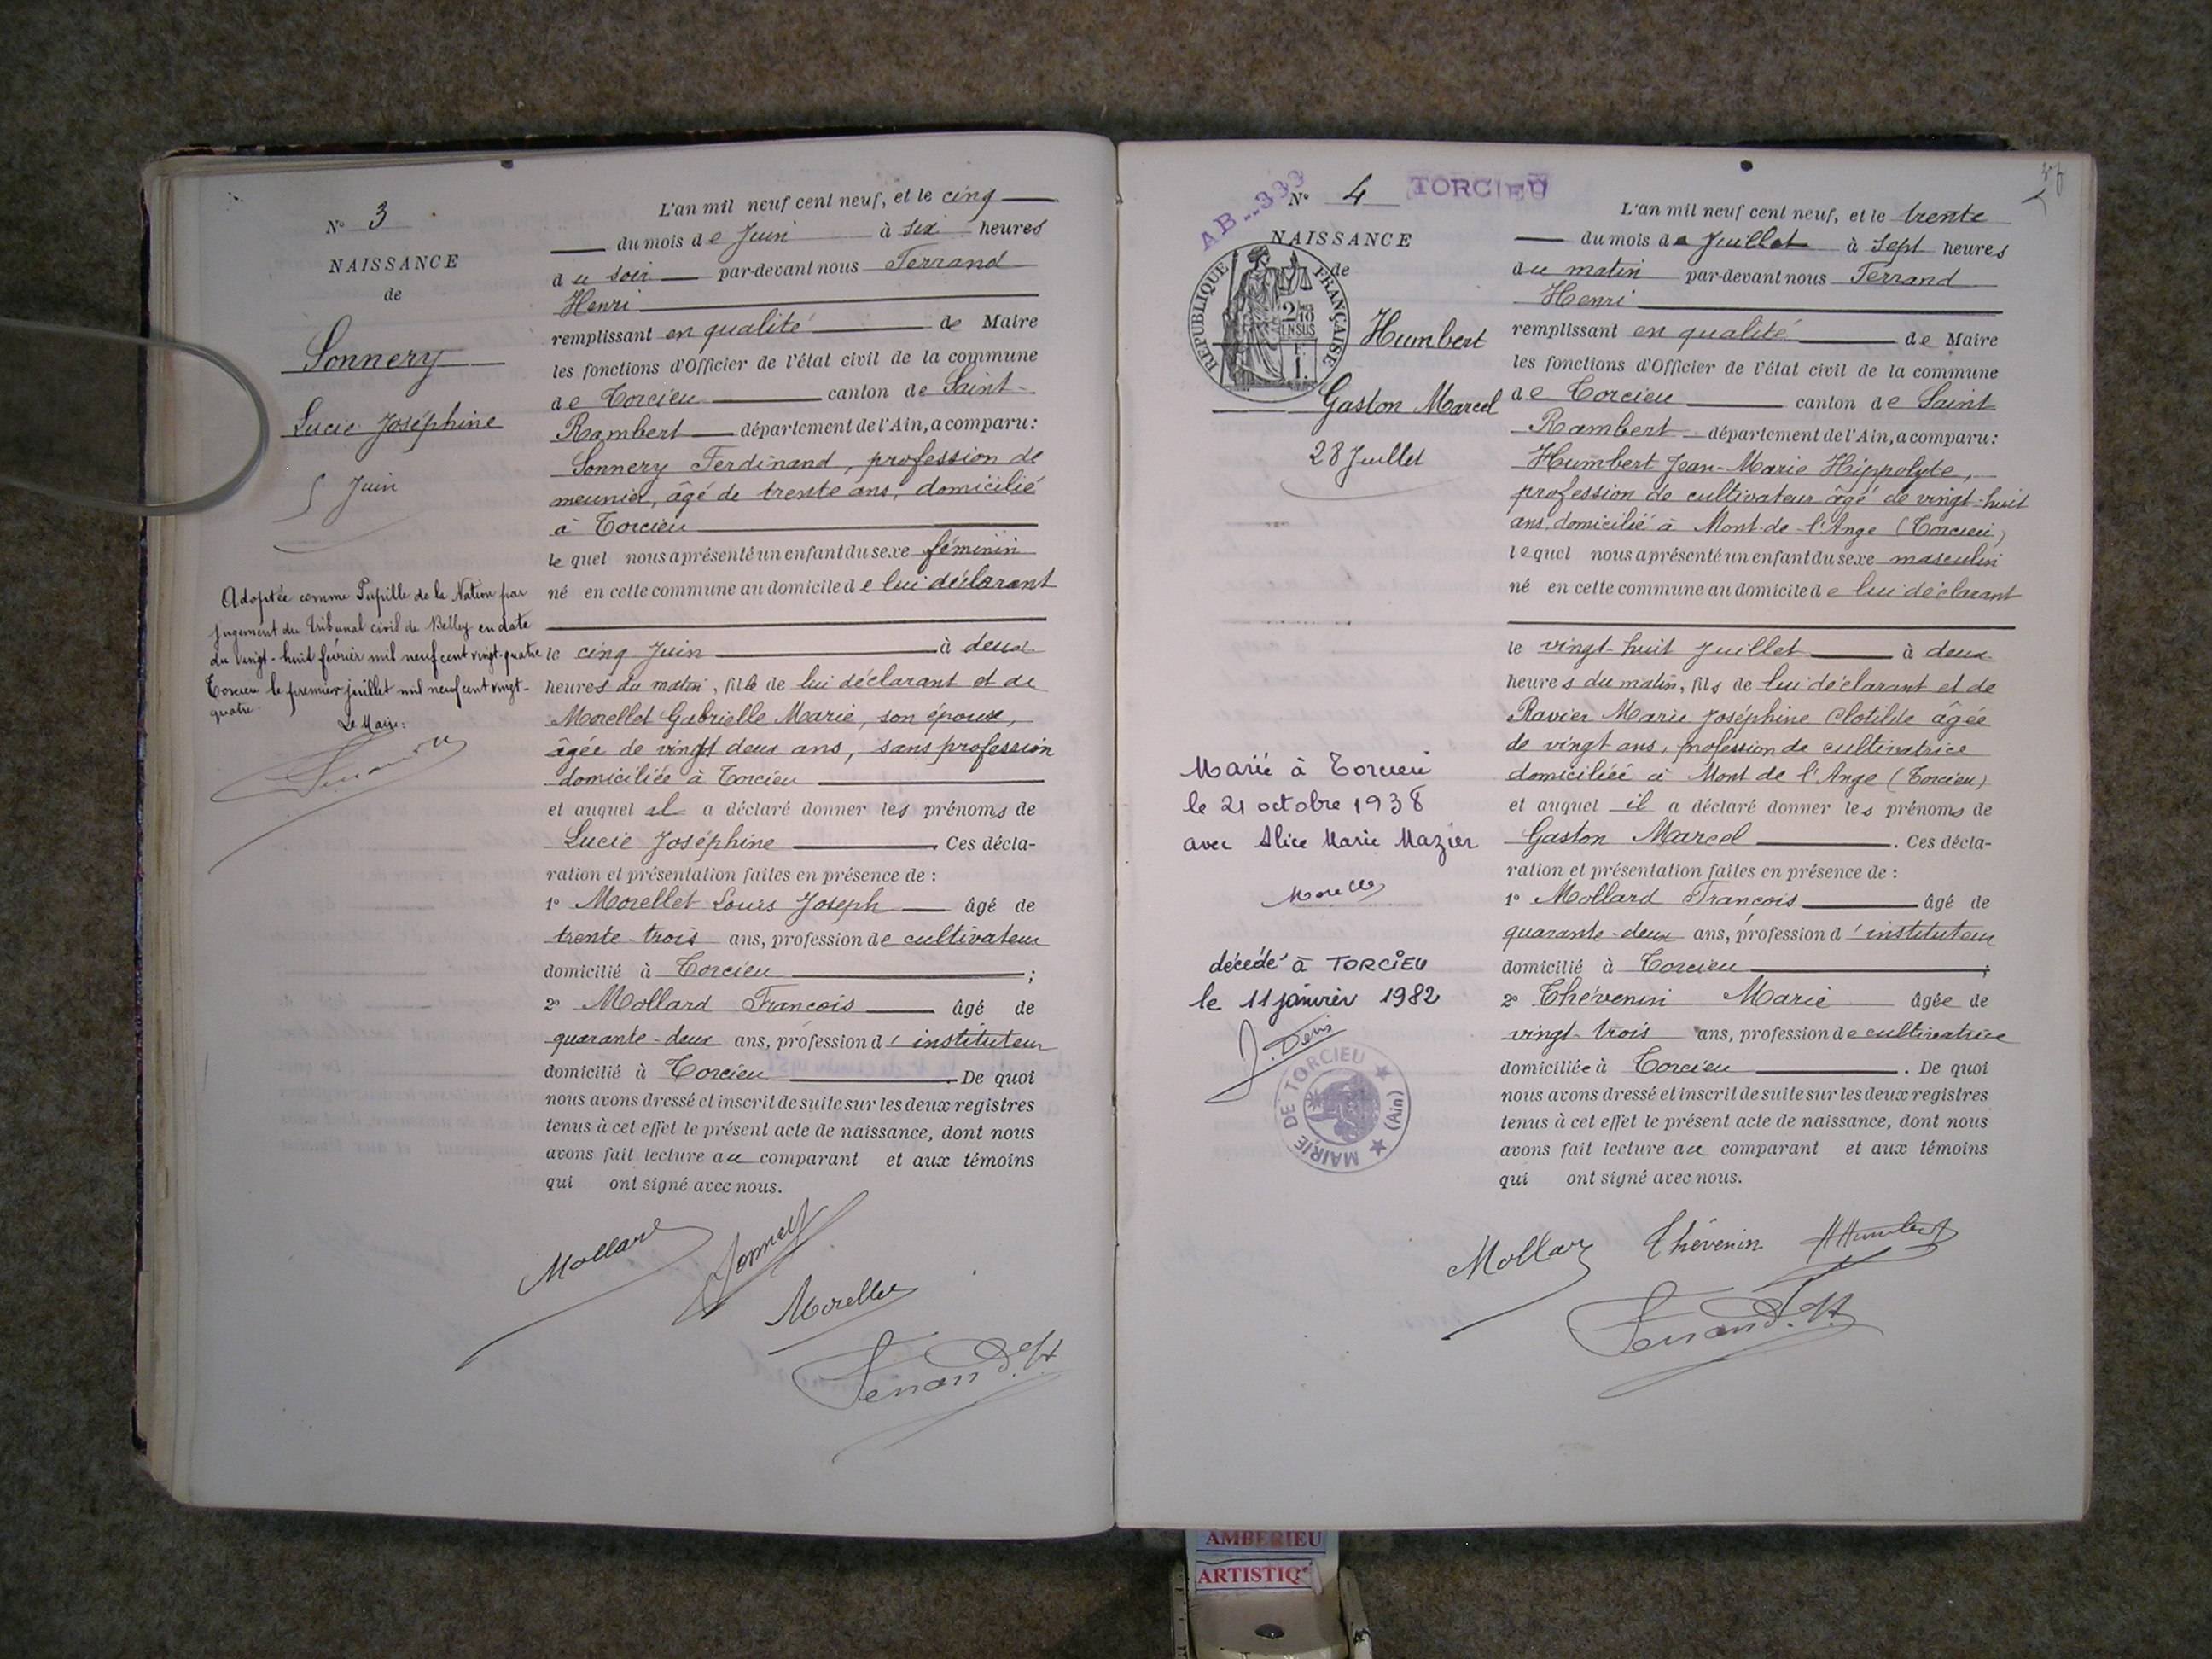 N° 3
NAISSANCE
de
Sonnery
Lucie Joséphine
5 Juin
Adoptée comme Pupille de la Nation par
jugement du Tribunal civil de Belley en date
du vingt-huit février mil neuf cent vingt-quatre
Torcieu le premier juillet mil neuf cent vingt-
quatre.
Le Maire:
L'an mil neuf cent neuf, et le cinq
du mois de Juin à six heures
du soir par-devant nous Ferrand
Henri
remplissant en qualité de Maire
les fonctions d'Officier de l'état civil de la commune
de Torcieu canton de Saint-
Rambert département de l'Ain, a comparu:
Sonnery Ferdinand, profession de
meunier, âgé de trente ans, domicilié
à Torcieu
lequel nous a présenté un enfant du sexe féminin
né en cette commune au domicile de lui déclarant
le cinq Juin à deux
heures du matin, fille de lui déclarant et de
Morellet Gabrielle Marie, son épouse,
âgée de vingt deux ans, sans profession
domiciliée à Torcieu
et auquel il a déclaré donner les prénoms de
Lucie Joséphine. Ces décla-
ration et présentation faites en présence de :
1° Morellet Louis Joseph âgé de
trente-trois ans, profession de cultivateur
domicilié à Torcieu ;
2° Mollard Francois âgé de
quarante-deux ans, profession d'instituteur
domicilié à Torcieu. De quoi
nous avons dressé et inscrit de suite sur les deux registres
tenus à cet effet le présent acte de naissance, dont nous
avons fait lecture au comparant et aux témoins
qui ont signé avec nous.
Mollard Sonnery
Morellet
Ferrand. H
AB--333
N° 4 TORCIEU
NAISSANCE
de
RÉPUBLIQUE FRANÇAISE
Humbert
Gaston Marcel
28 Juillet
Marié à Torcieu
le 21 octobre 1938
avec Alice Marie Mazier
décédé à TORCIEU
le 11 janvier 1982
J. Denis
MAIRIE DE TORCIEU (Ain)
L'an mil neuf cent neuf, et le trente
du mois de Juillet à sept heures
du matin par-devant nous Ferrand
Henri
remplissant en qualité de Maire
les fonctions d'Officier de l'état civil de la commune
de Torcieu canton de Saint
Rambert département de l'Ain, a comparu:
Humbert Jean-Marie Hippolyte,
profession de cultivateur âgé de vingt-huit
ans, domicilié à Mont-de-l'Ange (Torcieu)
lequel nous a présenté un enfant du sexe masculin
né en cette commune au domicile de lui déclarant
le vingt-huit Juillet à deux
heures du matin, fils de lui déclarant et de
Ravier Marie Joséphine Clotilde âgée
de vingt ans, profession de cultivatrice
domiciliée à Mont de l'Ange (Torcieu)
et auquel il a déclaré donner les prénoms de
Gaston Marcel. Ces décla-
ration et présentation faites en présence de :
1° Mollard Francois âgé de
quarante-deux ans, profession d'instituteur
domicilié à Torcieu ;
2° Thévenin Marie âgée de
vingt-trois ans, profession de cultivatrice
domiciliée à Torcieu. De quoi
nous avons dressé et inscrit de suite sur les deux registres
tenus à cet effet le présent acte de naissance, dont nous
avons fait lecture au comparant et aux témoins
qui ont signé avec nous.
Mollard Thévenin H Humbert
Ferrand. H
AMBERIEU
ARTISTIQ